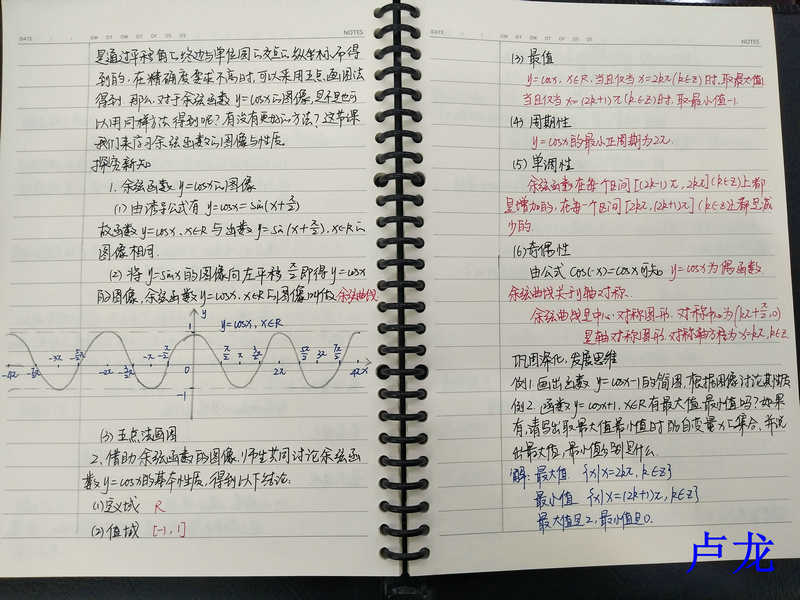 DATE / / ON OT OF OS OS NOTES
是通过平移角的终边与单位圆的交点的纵坐标而得
到的.在精确度要求不高时,可以采用五点画图法
得到.那么,对于余弦函数 y=cosx的图像,是不是也可
以用同样方法得到呢?有没有更好的方法?这节课
我们来学习余弦函数的图像与性质。
探究新知
1.余弦函数 y=cosx的图像
(1)由诱导公式有 y=cosx=sin(x+π/2)
故函数 y=cosx, x∈R与函数 y=sin(x+π/2), x∈R的
图像相同.
(2)将 y=sinx的图像向左平移 π/2 即得 y=cosx
的图像,余弦函数 y=cosx, x∈R的图像叫做余弦曲线
y
y=cosx, x∈R
1
-4π -3π -2π -π 0 π/2 π 3π/2 2π 5π/2 3π 7π/2 4π x
-1
(3)五点法画图
2.借助余弦函数的图像,师生共同讨论余弦函
数 y=cosx的基本性质,得到以下结论:
(1)定义域 R
(2)值域 [-1,1]
DATE / / NOTES
(3)最值
y=cosx, x∈R,当且仅当 x=2kπ(k∈Z)时,取最大值1
当且仅当 x=(2k+1)π(k∈Z)时,取最小值-1.
(4)周期性
y=cosx的最小正周期为2π.
(5)单调性
余弦函数在每个区间[(2k-1)π,2kπ](k∈Z)上都
是增加的,在每个区间[2kπ,(2k+1)π](k∈Z)上都是减
少的.
(6)奇偶性
由公式 cos(-x)=cosx可知 y=cosx为偶函数.
余弦曲线关于y轴对称.
余弦曲线是中心对称图形,对称中心为(kπ+π/2,0)
是轴对称图形,对称轴方程为x=kπ,k∈Z.
巩固深化,发展思维
例1.画出函数 y=cosx-1的简图,根据图像讨论其性质
例2.函数y=cosx+1, x∈R有最大值、最小值吗?如果
有,请写出取最大值最小值时的自变量x的集合,并说
出最大值,最小值分别是什么.
解:最大值 {x|x=2kπ, k∈Z}
最小值 {x|x=(2k+1)π, k∈Z}
最大值是2,最小值是0.
卢龙